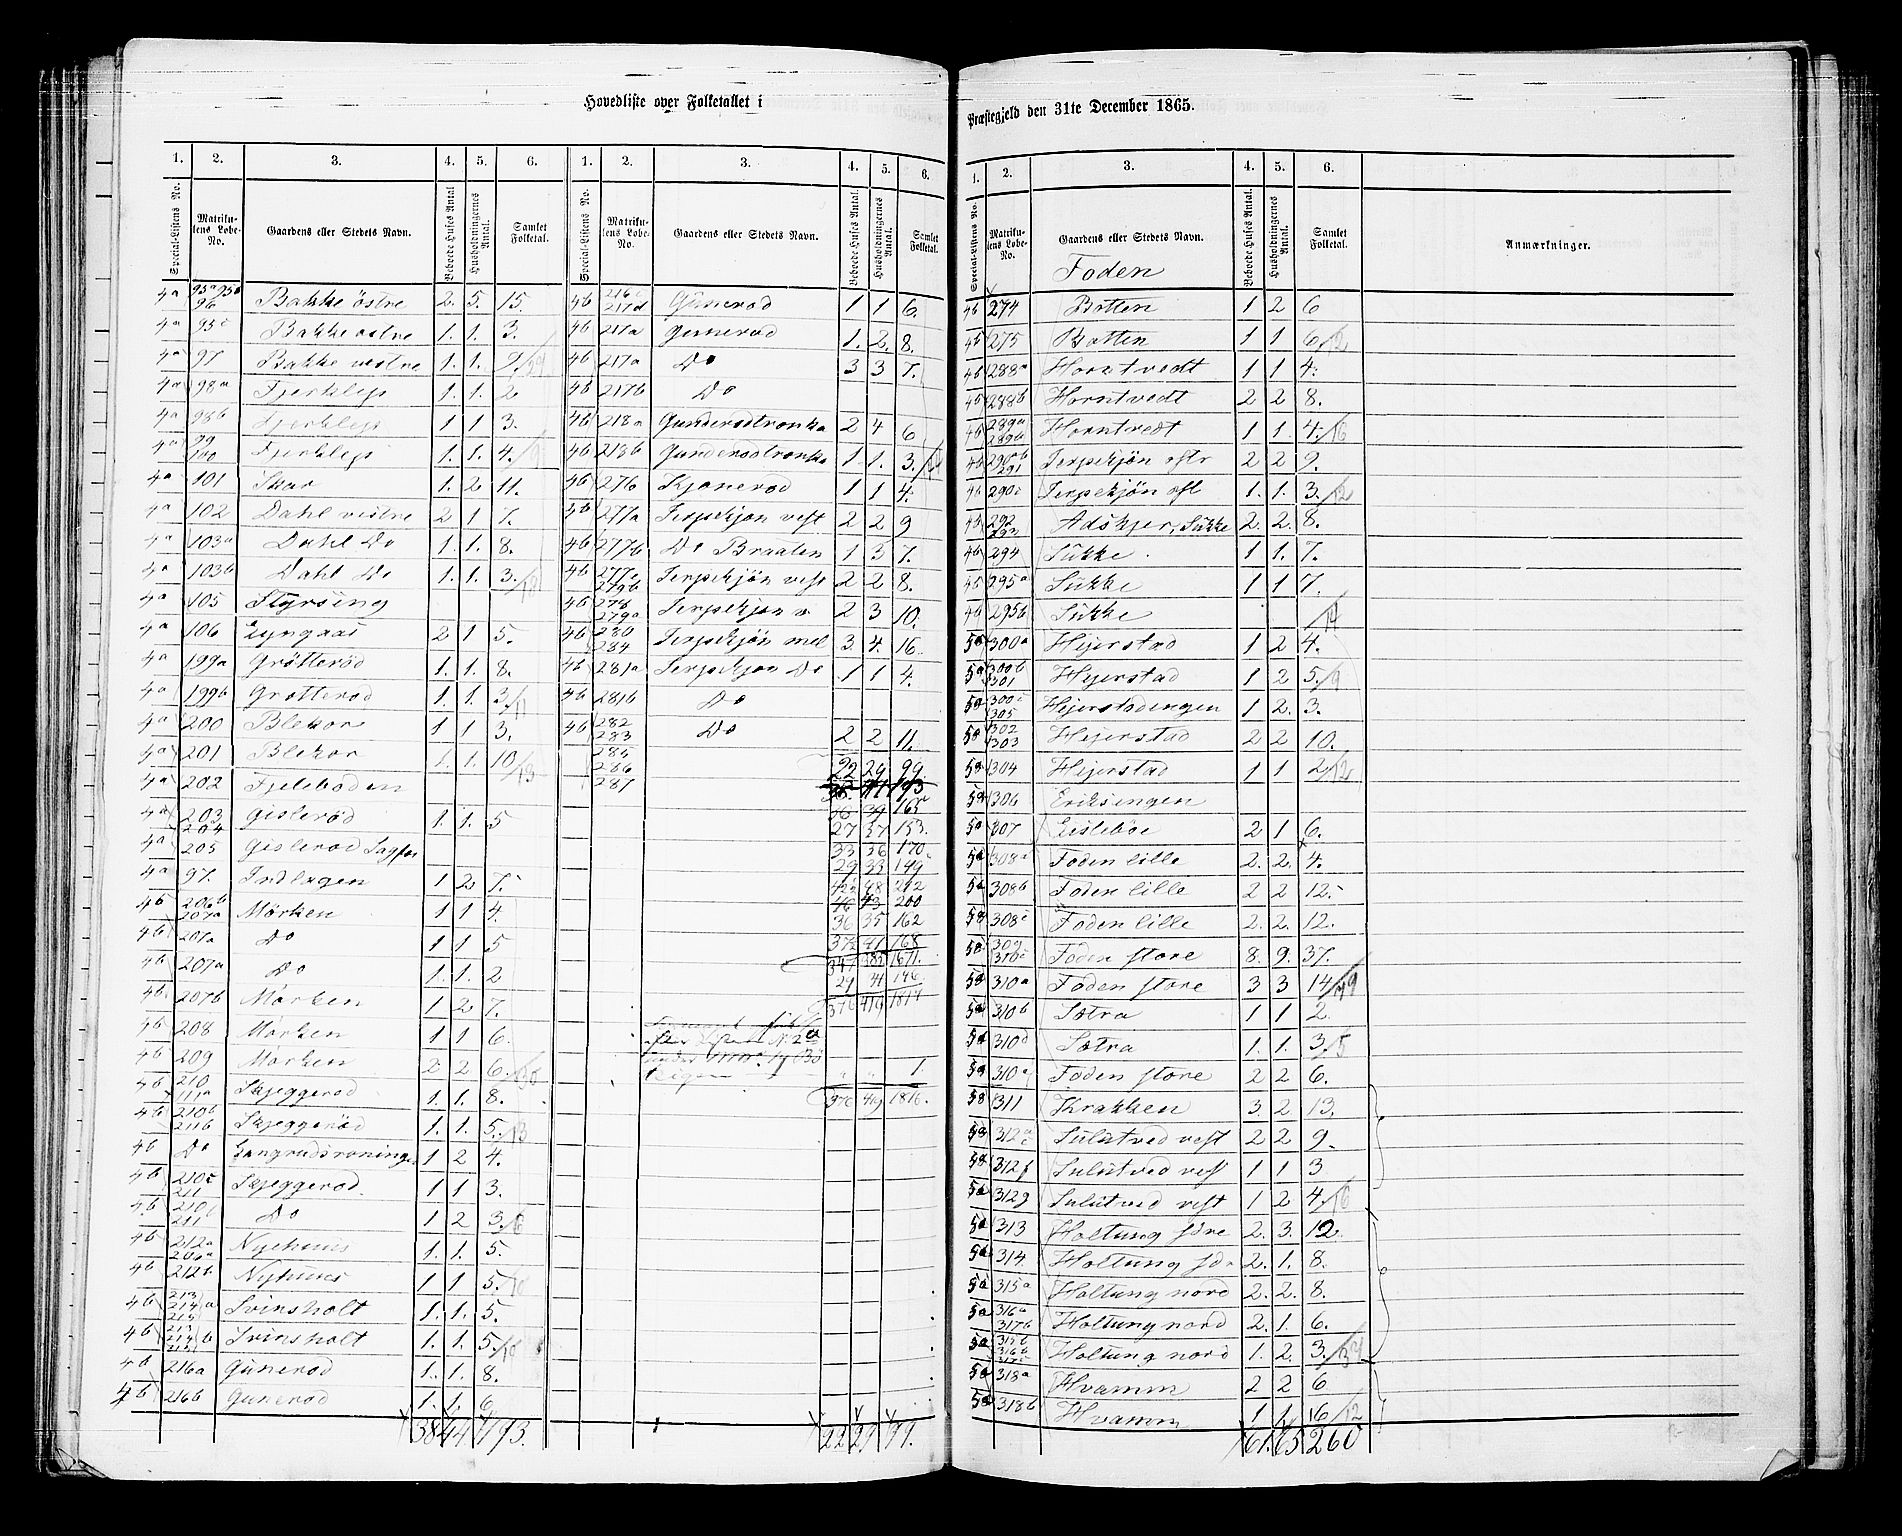 Hovedliste over Folketallet i
1. 2. 3. 4. 5. 6.
Special-Listens No. Matrikulens Lobe-No. Gaardens eller Stedets Navn. Beboede Huses Antal. Husholdningernes Antal. Samlet Folketal.
4a 95a 95b 96 Bakke östre 2. 5. 15.
4a 95c Bakke östre 1. 1. 3.
4a 97 Bakke vestre 1. 1.
4a 98a Fjerklep 1. 1. 2
4a 98b Fjerklep 1 1 3.
4a 99 100 Fjerklep 1. 1. 4.
4a 101 Skar 1. 2 11.
4a 102 Dahl vestre 2 1 7.
4a 103a Dahl Do 1. 1. 8.
4a 103b Dahl Do 1. 1. 3.
4a 105 Styrsing
4a 106 Lyngaas 2 1 5.
4a 199a Grötteröd 1. 1. 8.
4a 199b Grötteröd 1. 1. 3/11
4a 200 Blekor 1 1 3.
4a 201 Blekor 1. 1. 10/13
4a 202 Fjeleboden
4a 203 204 Gisleröd 1. 1. 5
4a 205 Gisleröd
4a 97. Indlagen 1 2 7.
4b 206b 207a Mörken 1 1 4.
4b 207a Do 1 1 5
4b 207a Do 1. 1. 2
4b 207b Mörken 1 2 7.
4b 208 Mörken 1 1 6
4b 209 Mörken 2 2 6.
4b 210 Skjeggeröd 1. 1. 8.
4b 210b 211b Skjeggeröd 1. 1. 5/13
4b Do 1 2 4.
4b 210c 211 Skjeggeröd 1 1 3.
4b 210 211 Do 1 2 3.
4b 212a 206a Nyehuus 1. 1. 5.
4b 212b Nyhuus 1 1 5/10
4b 213 214 a 215 Svinsholt 1. 1. 5.
4b 213 214 b 215 Svinsholt 1. 1. 5/10
4b 216a Guneröd 1. 1. 8.
4b 216b Guneröd 1. 1. 6
38 44 193.
1. 2. 3. 4. 5. 6.
Special-Listens No. Matrikulens Lobe-No. Gaardens eller Stedets Navn. Beboede Huses Antal. Husholdningernes Antal. Samlet Folketal.
4b 216c 217d Guneröd 1 1 6.
4b 217a Guneröd 1. 2. 8.
4b 217a Do 3 3 7.
4b 217b Do
4b 218a Gunderödtronka 2 4 6
4b 218b Gunderödtronka 1. 1. 3.
4b 276 Kjoneröd 1 1 4.
4b 277a Jerpekjön vest 2 2 9
4b 277b Do Braaten 1 3 7.
4b 277c 279b Jerpekjön vest 2 2 8.
4b 278 279a Jerpekjön v 2 3 10.
4b 280 284 Jerpekjön mel 3. 4. 16.
4b 281a Jerpekjön Do 1 1 4.
4b 281b Do
4b 282 283 Do 2 2 11.
285
286 22 29 99
287
36 39 165
27 37 153.
33 36 170
29 33 149
48 212
46 43 200
36 35 162
41 168
347 385 1671.
29 41 146
376 419 1817
1.
376 419 1816.
22 29 99.
Præstegjeld den 31te December 1865.
1. 2. 3. 4. 5. 6.
Special-Listens No. Matrikulens Lobe-No. Gaardens eller Stedets Navn. Beboede Huses Antal. Husholdningernes Antal. Samlet Folketal. Anmærkninger.
Foden
4b 274 Botten 1 2 6
4b 275 Botten 1 1 6/12
4b 288a Horntvedt 1 1 4.
4b 288b Horntvedt 2 2 8.
4b 289a 289b Horntvedt 1 1 4/16
4b 290b 291 Jerpekjön östr 2 2 9.
4b 290c Jerpekjön öst 1. 1. 3/12
4b 292 293 Adskjer, Sükke 2. 2. 8.
4b 294 Sükke 1 1. 7.
4b 295a Sükke 1 1 7.
4b 295b Sükke /14
5a 300a Hejerstad 1 2 4.
5a 300b 301 Hejerstad 1 2 5/9
5a 300c 305 Hejerstadengen 1 2. 3.
5a 302 303 Hejerstad 2 2 10.
5a 304 Hejerstad 1 1 2/12
5a 306 Eriksengen
5a 307 Eisleböe 2 1 6.
5a 308a Foden lille 2. 2. 4.
5a 308b Foden lille 2 2 12.
5a 308c Foden lille 2. 2. 12.
5a 309 310c Foden store 8. 9. 37.
5a 310a Foden store 3 3 14/79
5a 310b Sætra 1 1 2
5a 310d Sætra 1. 1. 3/5
5a 310a Foden store 2 2 6.
5a 311 Krakken 3. 2 13.
5a 312 Sulutved vest 2 2 9.
5a 312f Sulutved vest 1 1 3
5a 312g Sulutved vest 1 2 4/16
5a 313 Holtung 2. 3. 12.
5a 314 Holtung 2. 1. 8.
5a 315a Holtung nord 2. 2. 8.
5a 316a 317b Holtung nord 2. 1. 6.
5a 315b 316b 317c Holtung nord 1. 2. 3.
5a 318a Hvamm 2 2 6
5a 318b Hvamm 1 1. 6/12
61. 65 260